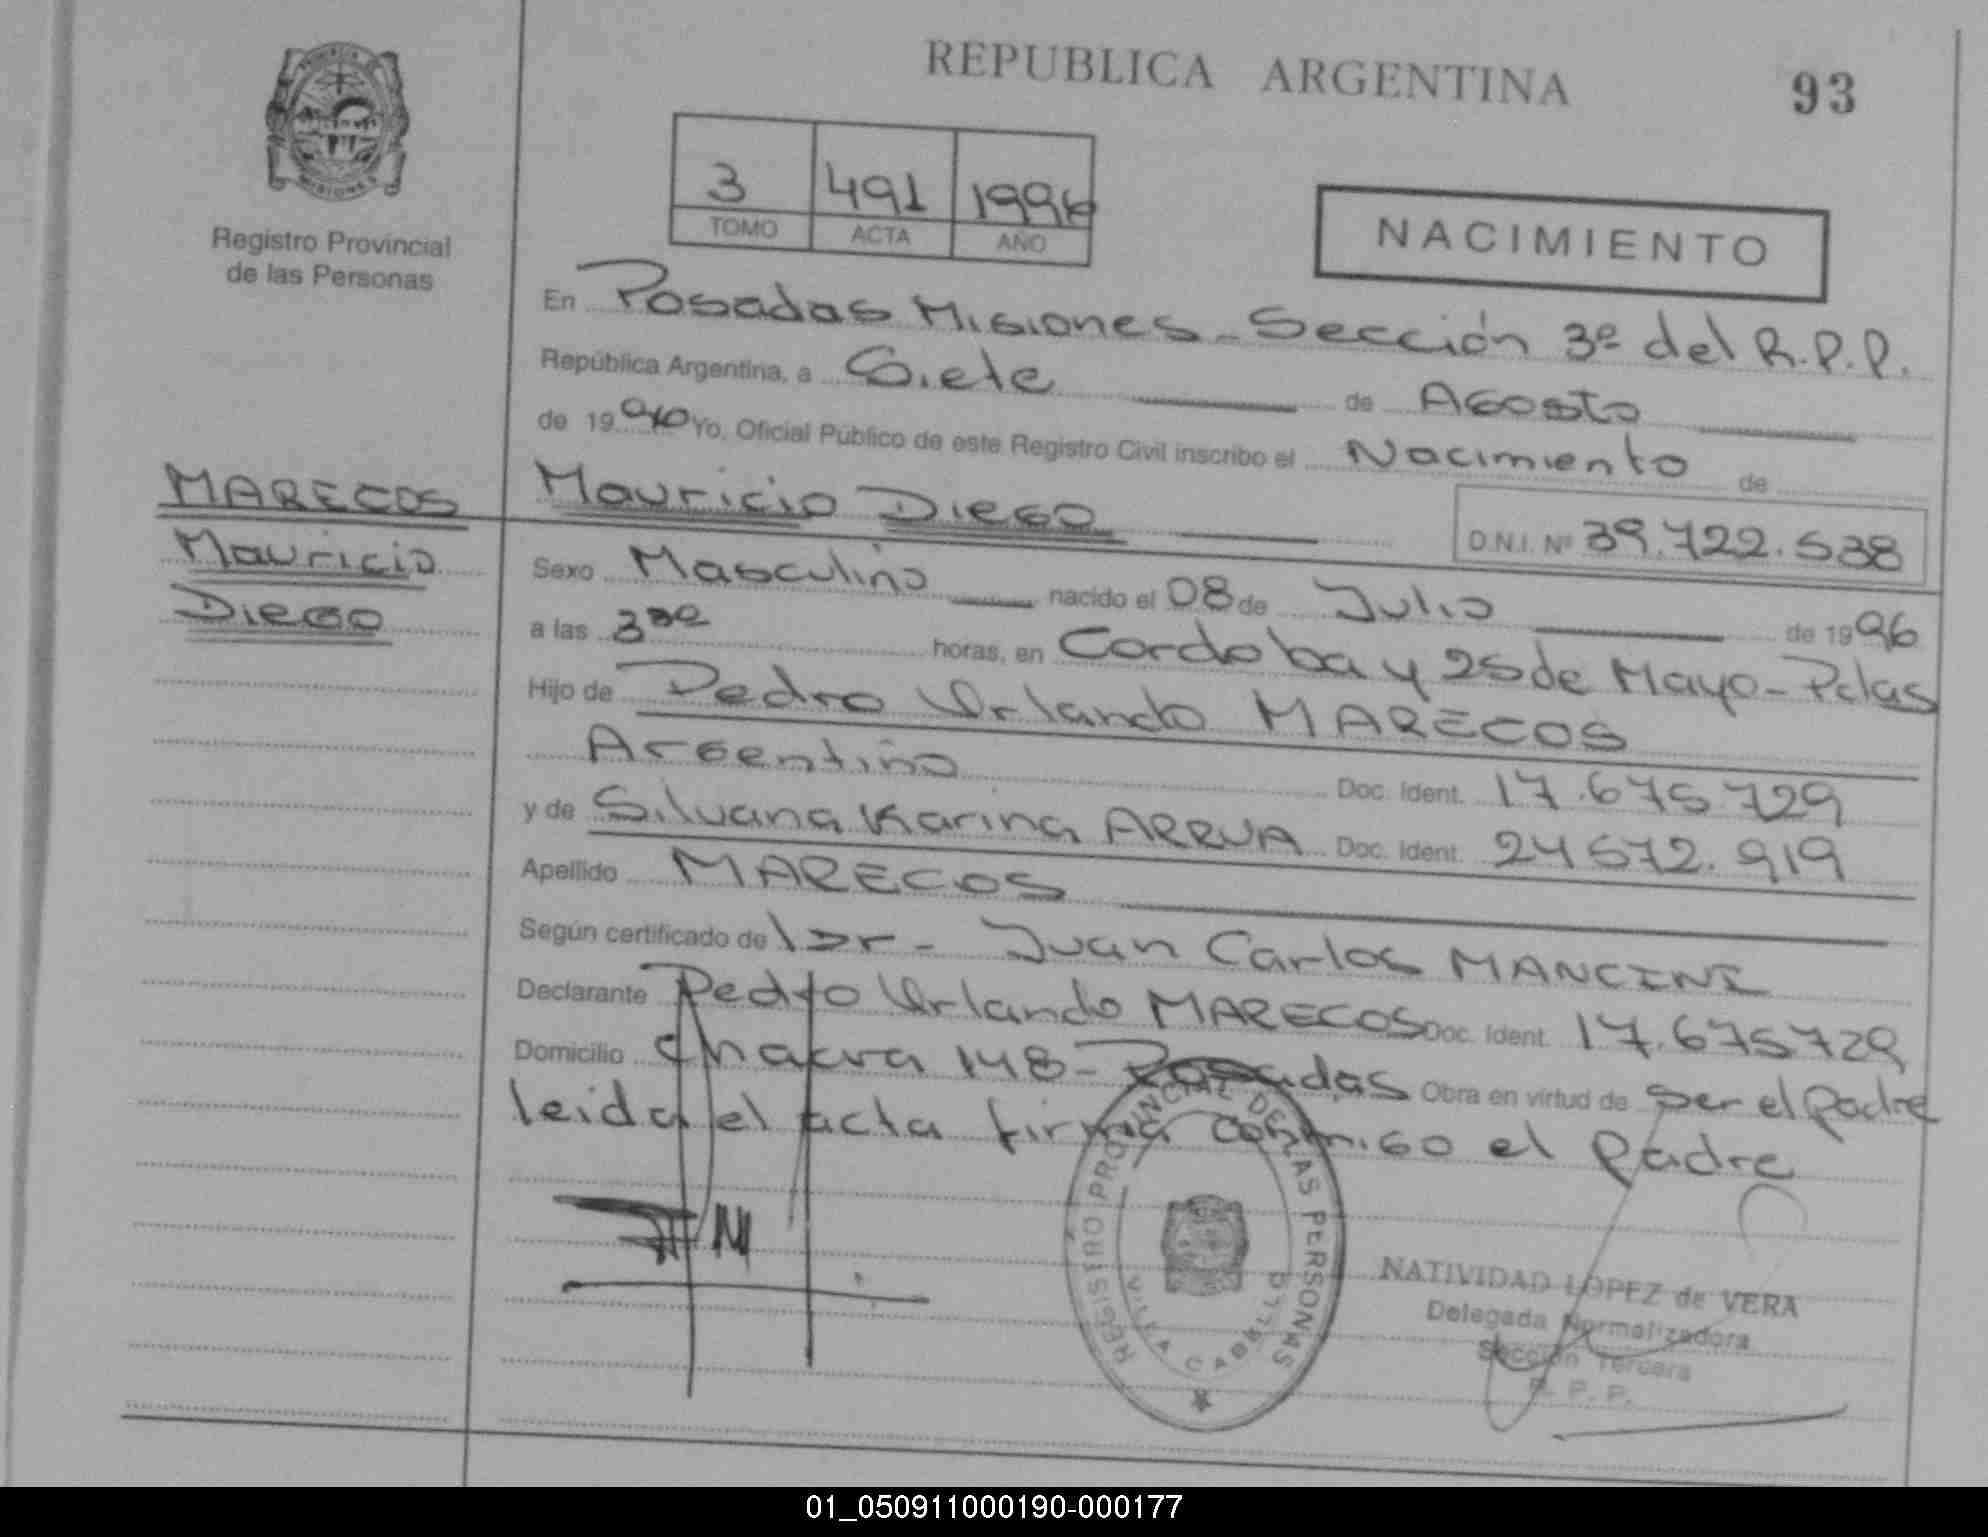 REPUBLICA ARGENTINA
93
PROVINCIA DE MISIONES
Registro Provincial
de las Personas
3 491 1996
TOMO ACTA AÑO
NACIMIENTO
En Posadas Misiones - Sección 3ª del R.P.P.
República Argentina, a Siete de Agosto
de 1996 Yo, Oficial Público de este Registro Civil inscribo el Nacimiento de
MARECOS
Mauricio
Diego
Mauricio Diego
D.N.I. Nº 39.722.538
Sexo Masculino nacido el 08 de Julio de 1996
a las 3³⁰ horas, en Cordoba y 25 de Mayo - Pdas
Hijo de Pedro Orlando MARECOS
Argentino Doc. Ident. 17.675.729
y de Silvana Karina ARRUA Doc. Ident. 24572.919
Apellido MARECOS
Según certificado de Dr - Juan Carlos MANCINI
Declarante Pedro Orlando MARECOS Doc. Ident. 17.675729
Domicilio Chacra 148 - Posadas Obra en virtud de ser el padre
leida el acta firma conmigo el padre
REGISTRO PROVINCIAL DE LAS PERSONAS
VILLA CABELLO
NATIVIDAD LOPEZ de VERA
Delegada Normalizadora
Sección Tercera
R. P. P.
01_050911000190-000177